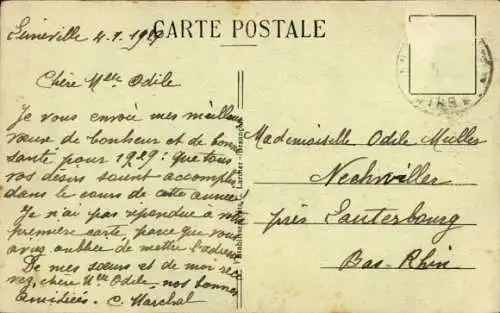 Lunéville 4.1.1929
CARTE POSTALE
Chère Mlle Odile
Je vous envoie mes meilleurs
vœux de bonheur et de bonne
santé pour 1929: que tous
vos désirs soient accomplis
dans le cours de cette année!
Je n'ai pas répondue à votre
première carte parce que vous
aviez oubliée de mettre l'adresse
De mes sœurs et de moi re
cevez, chère Mlle Odile, nos bonnes
amitiées. C. Marchal
Mademoiselle Odile Müller
Neehwiller
près Lauterbourg
Bas-Rhin